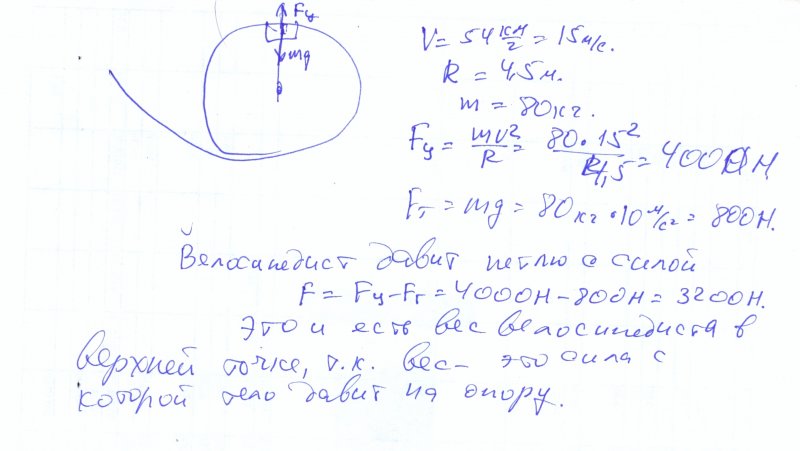 Fц
mg
V = 54 км/г = 15 м/с.
R = 4,5 м.
m = 80 кг.
Fц = mv²/R = 80·15²/4,5 = 4000 Н
Fт = mg = 80 кг · 10 м/с² = 800 Н.
Велосипедист давит петлю с силой
F = Fц - Fт = 4000Н - 800Н = 3200Н.
Это и есть вес велосипедиста в
верхней точке, т.к. вес - это сила с
которой тело давит на опору.